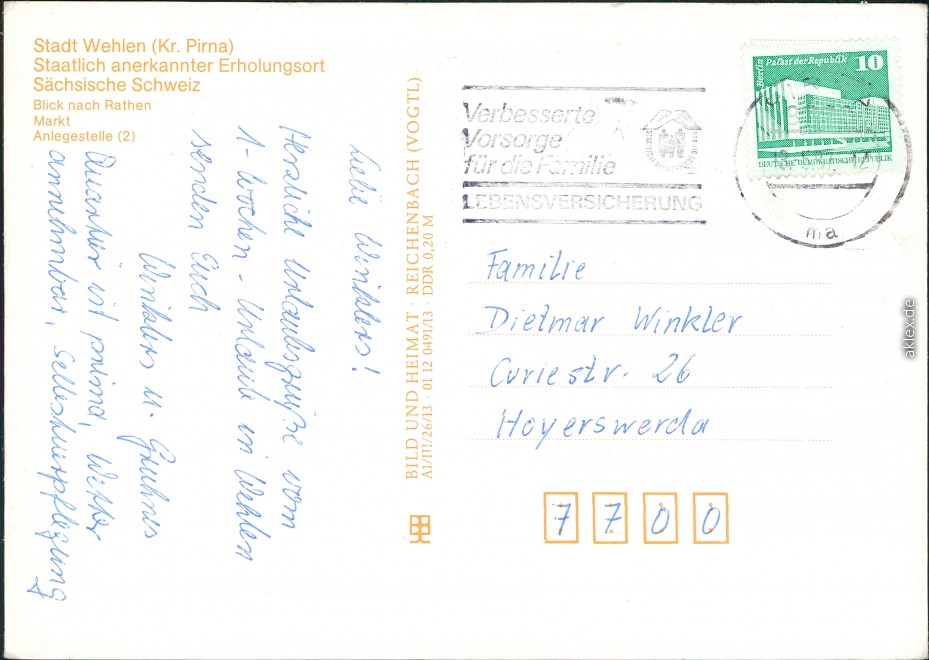 Stadt Wehlen (Kr. Pirna)
Staatlich anerkannter Erholungsort
Sächsische Schweiz
Blick nach Rathen
Markt
Anlegestelle (2)
Liebe Winklers!
Herzliche Urlaubsgrüße vom
1-Wochen-Urlaub in Wehlen
senden Euch
Winklers u.
Quartier ist prima, Wetter
annehmbar, Selbstverpflegung
BILD UND HEIMAT · REICHENBACH (VOGTL)
A1/III/26/13 · 01 12 0491/13 · DDR 0,20 M
Verbesserte
Vorsorge
für die Familie
LEBENSVERSICHERUNG
Berlin Palast der Republik 10
DEUTSCHE DEMOKRATISCHE REPUBLIK
Familie
Dietmar Winkler
Curiestr. 26
Hoyerswerda
7700
aklex.de